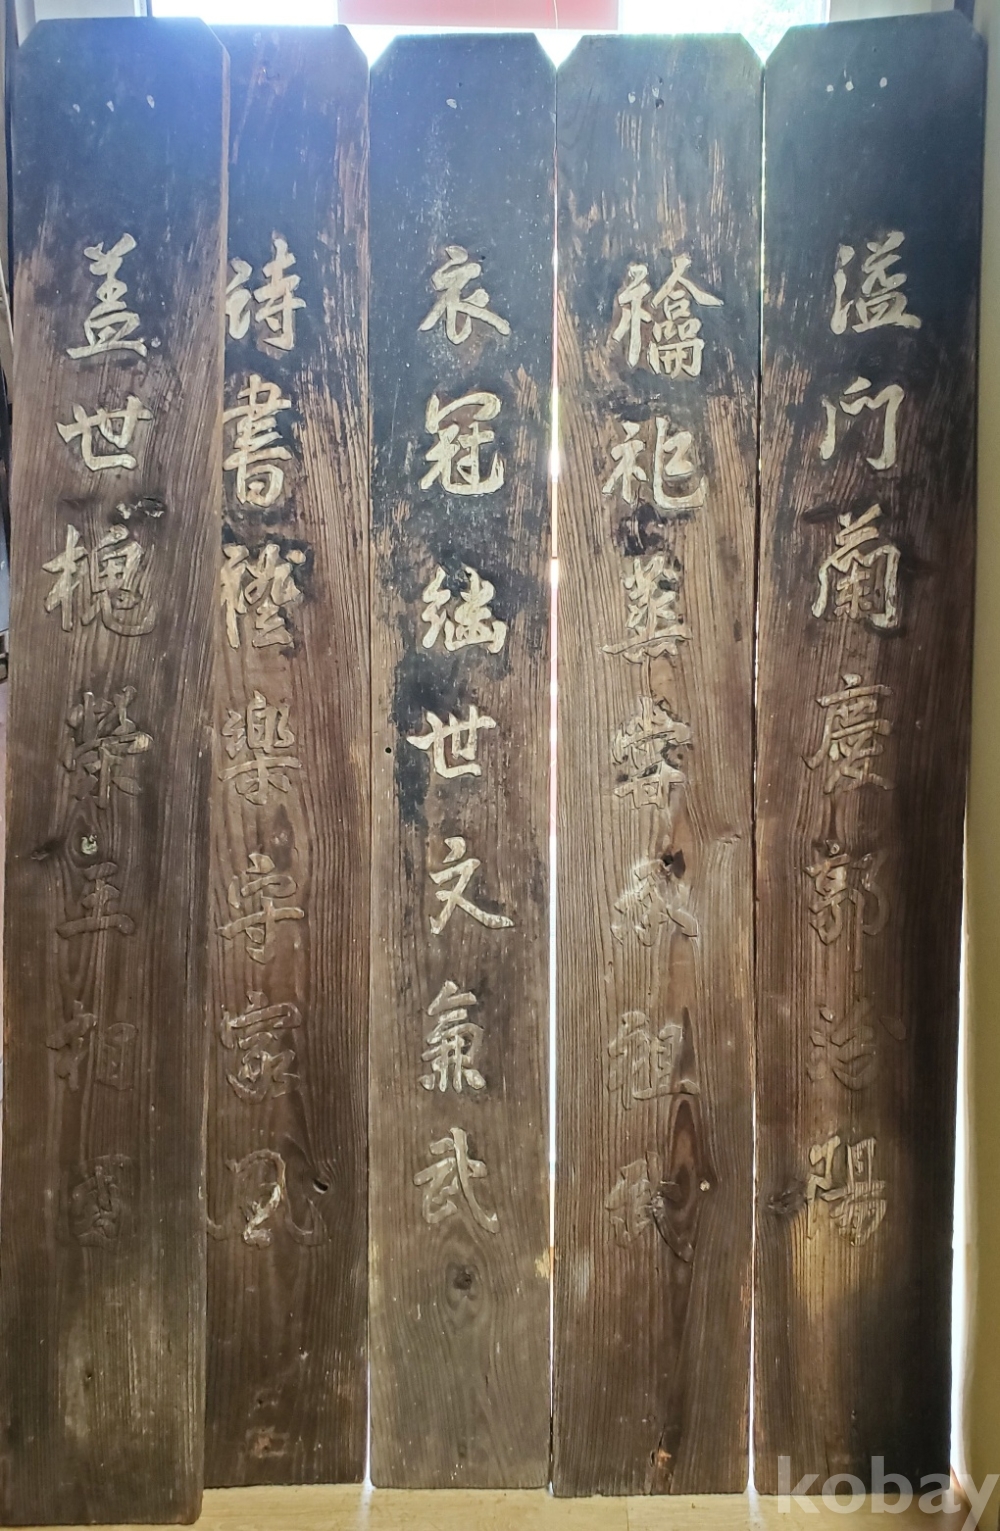 溢門蘭慶郭汾陽
禴祀蒸嘗承祖武
衣冠継世文兼武
詩書禮楽守家風
盖世槐榮王相國
kobay